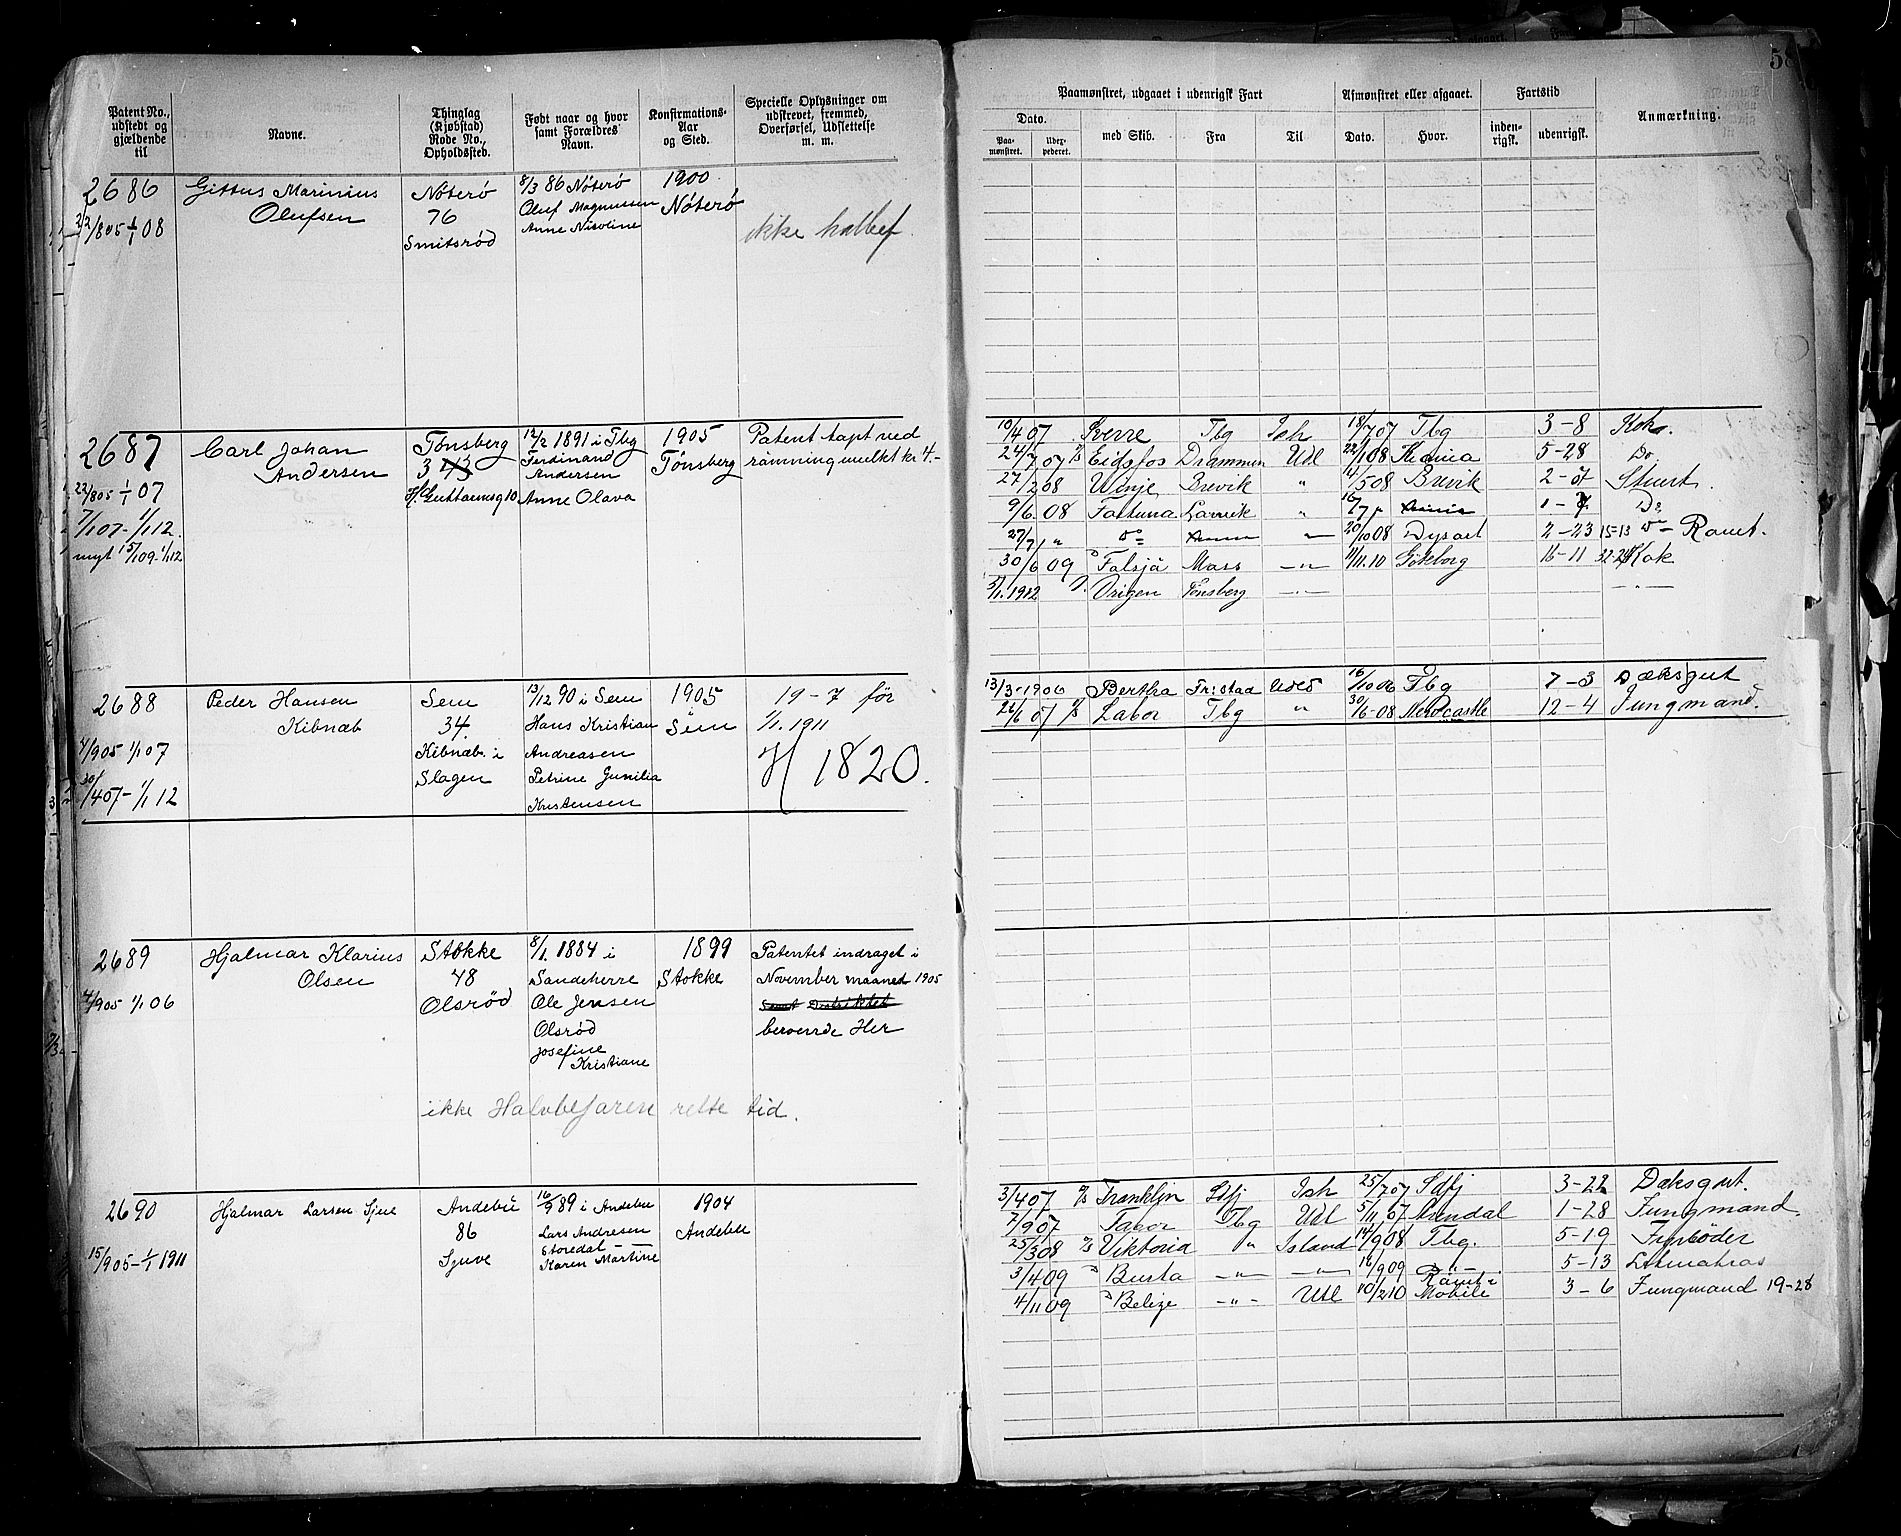 58
Patent No., udstedt og gjældende til
Navne.
Thinglag (Kjøbstad) Rode No., Opholdssted.
Født naar og hvor samt Forældres Navn.
Konfirmations-Aar og Sted.
Specielle Oplysninger om udstrevet, fremmed, Overførsel, Udslettelse m. m.
Paamønstret, udgaaet i udenrigsk Fart
Afmønstret eller afgaaet.
Fartstid
Anmærkning.
Dato.
med Skib.
Fra
Til
Dato.
Hvor.
inden-rigsk.
udenrigsk.
Paa-mønstret.
2686
Olufsen
Nøterø
76
Smitsrød
8/3 86 Nøterø
Oluf Magnussen
Anne Nicoline
1900
Nøterø
ikke halbef.
2687
Carl Johan
Andersen
22/805 1/1 07
7/107 - 1/1 12.
nyt 15/109-1/1 12
Tønsberg
12/2 1891 i Tbg
Ferdinand
Andersen
Anne Olava
1905
Tønsberg
Patent tapt ved
rømning mulkt kr 4.-
10/4 07 Sverre Tbg Ish 18/7 07 Tbg 3-8 Kok.
24/7 07 Eidsfos Drammen Udl 22/1 08 5-28 Do.
27/2 08 Winje Brevik " 14/5 08 Brevik 2-7 Stuert.
9/6 08 Fortuna Larvik " 16/7 1-7 Do
27/7 " Do 20/10 08 Dysart 2-23 15-13 Do Rømt.
30/6 09 Falsjä Moss -"- 11/11.10 Göteborg 16-11 Kok
3/1.1912 Origen Tønsberg -"- -"-
2688
Peder Hansen
Kibnæb
4/905 1/1 07
30/407- 1/1 12
Sem
34.
Kibnæb i
Slagen
13/12 90 i Sem
Hans Kristian
Andreasen
Petrine Gunilia
Kristensen
1905
Sem
19-7 før
1/1.1911
H 1820.
13/3-1906 Bertha Fr:stad Udld 16/10 06 Tbg 7-3 Dæksgut
26/6 07 Labor Tbg " 30/6-08 Newcastle 12-4 Jungmand.
2689
Hjalmar Klarius
Olsen
4/905 1/1 06
Stokke
48
Olsrød
8/1 1884 i
Sandeherre
Ole Jensen
Olsrød
Josefine
Kristiane
1899
Stokke
Patentet indraget i
November maaned 1905
Samt Distriktet
beroende Her
ikke Halvbefaren rette tid.
2690
Hjalmar Larsen Sjue
15/905-1/1 1911
Andebu
86
Sjuve
16/9 89 i Andebu
Lars Andresen
Storedal
Karen Martine
1904
Andebu
3/4 07 Franklin Sdfj Ish 25/7 07 Sdfj 3-22 Dæksgut.
7/9 07 Tabor Tbg Udl 5/11 07 Arendal 1-28 Jungmand
25/3 08 Viktoria " Island 14/9 08 Tbg. 5-19 Fyrbøder
3/4 09 Busta -"- -"- 16/9 09 -"- 5-13 Letmatros
4/11 09 Belize -"- Udl 10/2 10 Rømt i Mobile 3-6 Jungmand 19-28